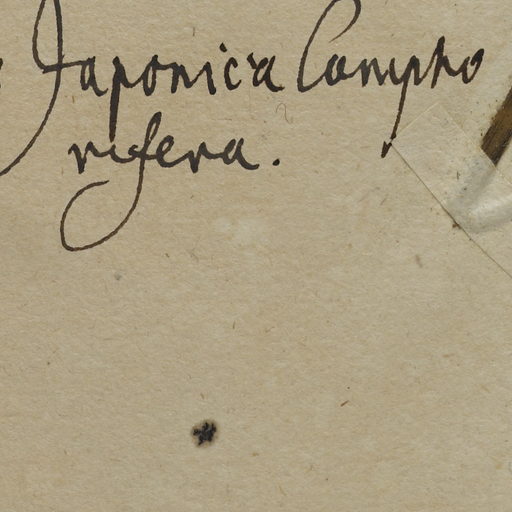 Japonica Campho
rifera.